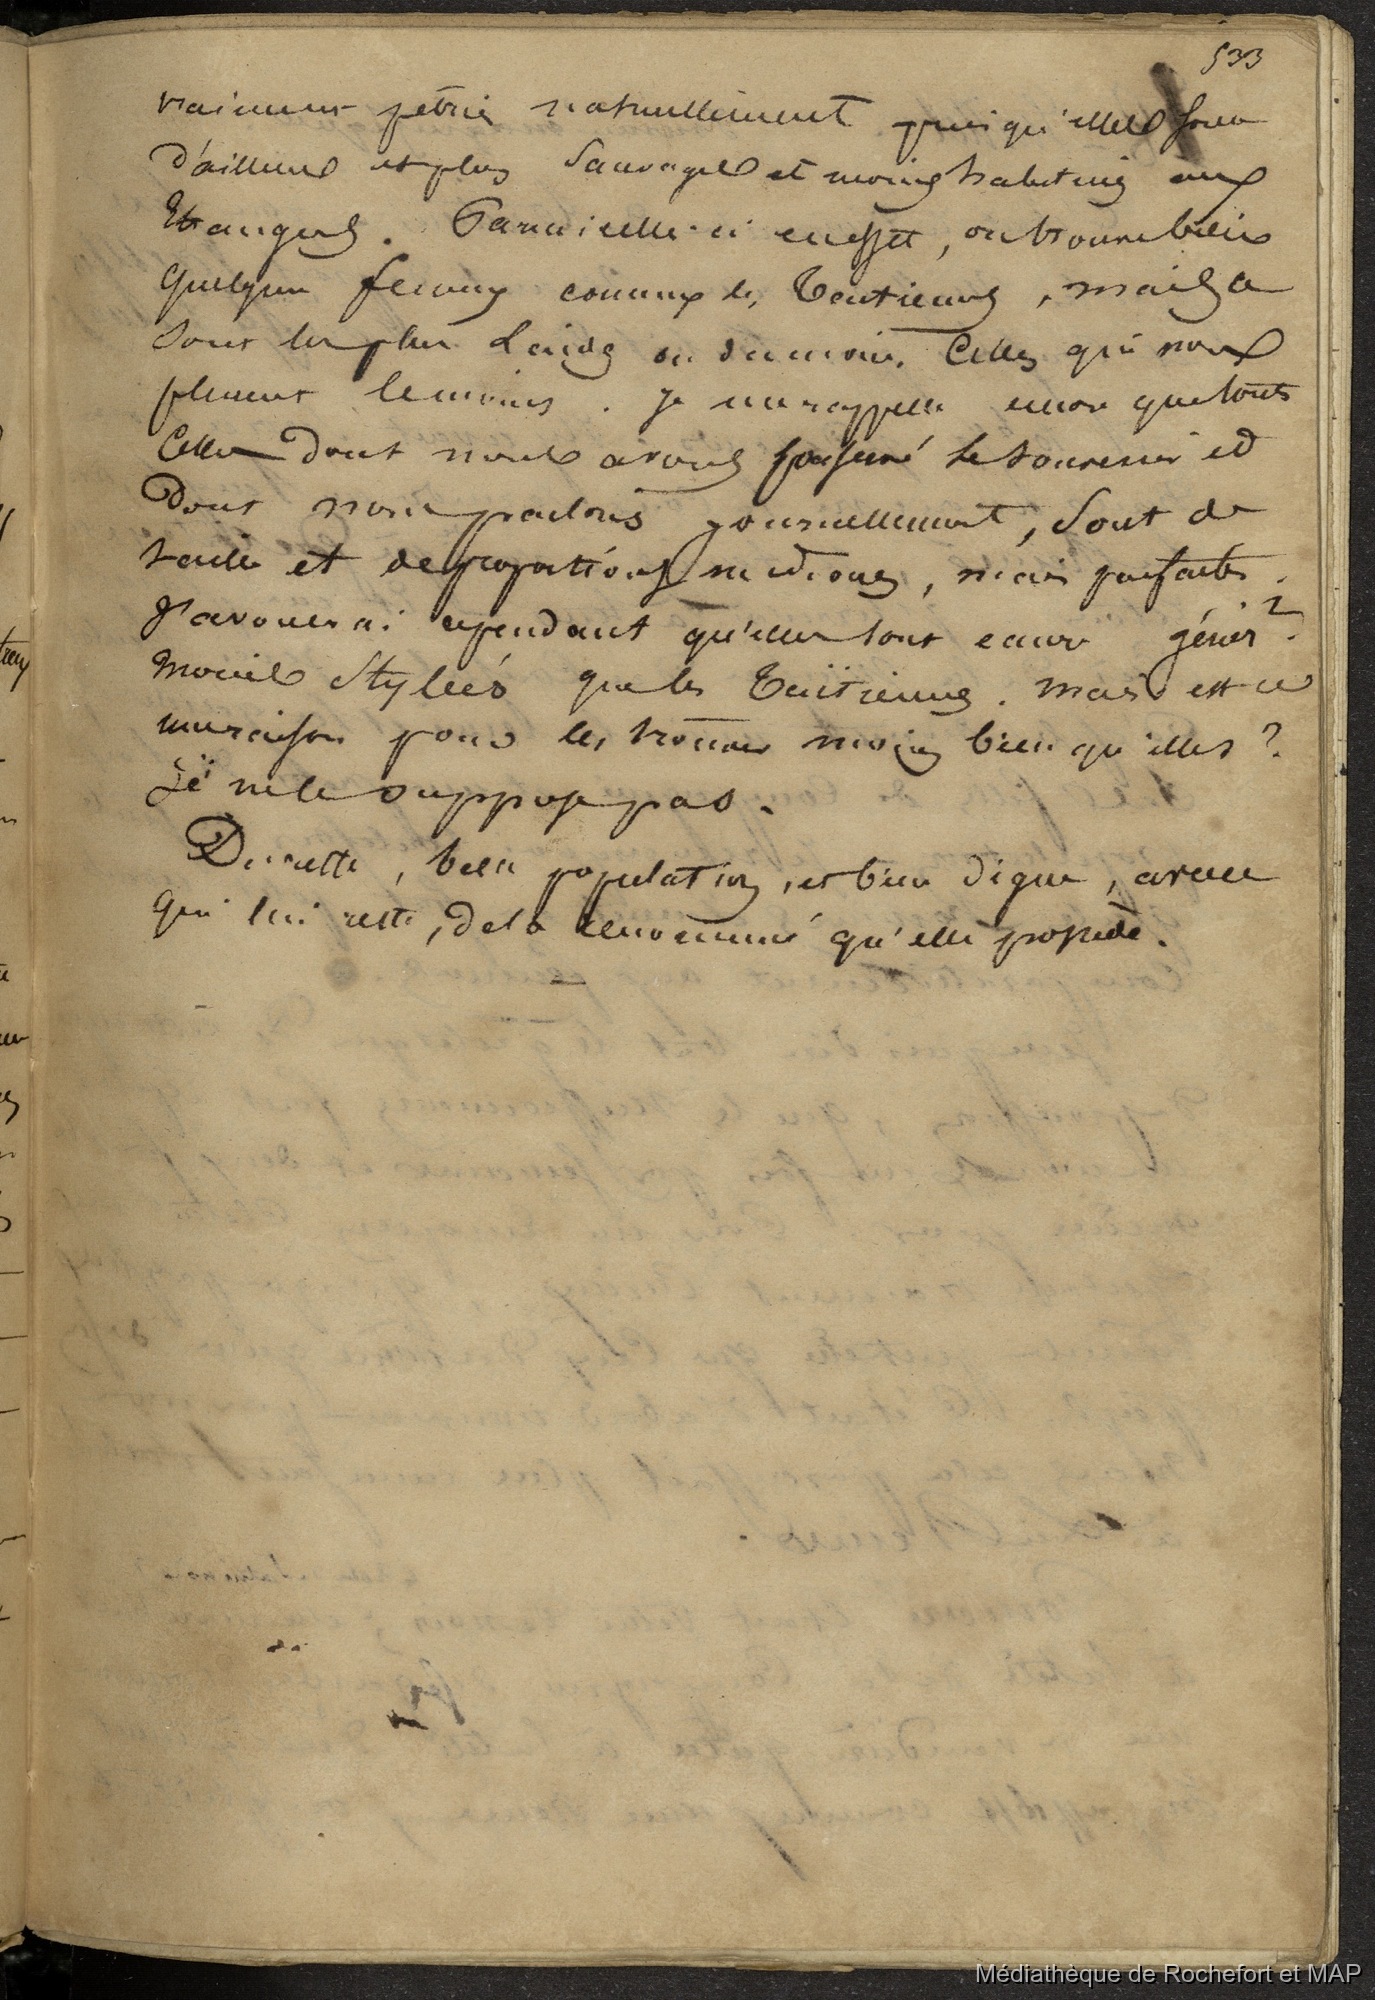 533
vraiment pétries naturellement puisqu'elles sont
d'ailleurs et plus sauvages et moins habituées aux
Etrangers. Parmi celle-ci en effet, on trouve bien
quelques femmes comme les Taïtiennes, mais ce
sont les plus laides ou du moins celles qui nous
plurent le moins. Je me rappelle encore que toutes
celles dont nous avons le souvenir et
dont nous parlons journellement, sont de
taille et de proportions médiocres, mais parfaites.
J'avouerai cependant qu'elles sont encore
moins stylées que les Taïtiennes. mais est ce
une raison pour les trouver moins bien qu'elles ?
Je ne le suppose pas.
Du reste, belle population, et bien digne, avec ce
qui lui reste, de la renommée qu'elle possède.
Médiathèque de Rochefort et MAP